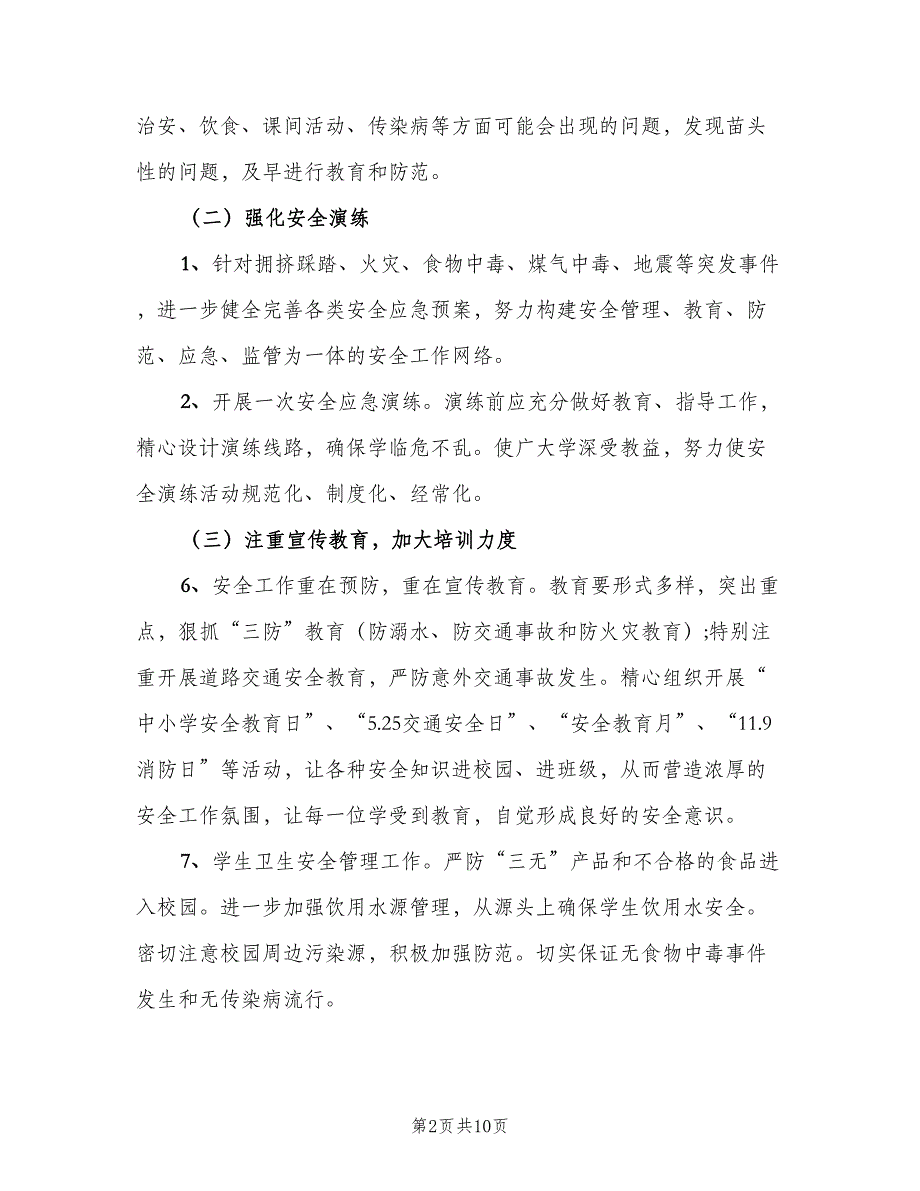 治安、饮食、课间活动、传染病等方面可能会出现的问题，发现苗头
性的问题，及早进行教育和防范。
（二）强化安全演练
1、针对拥挤踩踏、火灾、食物中毒、煤气中毒、地震等突发事件
，进一步健全完善各类安全应急预案，努力构建安全管理、教育、防
范、应急、监管为一体的安全工作网络。
2、开展一次安全应急演练。演练前应充分做好教育、指导工作，
精心设计演练线路，确保学临危不乱。使广大学深受教益，努力使安
全演练活动规范化、制度化、经常化。
（三）注重宣传教育，加大培训力度
6、安全工作重在预防，重在宣传教育。教育要形式多样，突出重
点，狠抓“三防”教育（防溺水、防交通事故和防火灾教育）;特别注
重开展道路交通安全教育，严防意外交通事故发生。精心组织开展“
中小学安全教育日”、“5.25交通安全日”、“安全教育月”、“11.9
消防日”等活动，让各种安全知识进校园、进班级，从而营造浓厚的
安全工作氛围，让每一位学受到教育，自觉形成良好的安全意识。
7、学生卫生安全管理工作。严防“三无”产品和不合格的食品进
入校园。进一步加强饮用水源管理，从源头上确保学生饮用水安全。
密切注意校园周边污染源，积极加强防范。切实保证无食物中毒事件
发生和无传染病流行。
第2页共10页